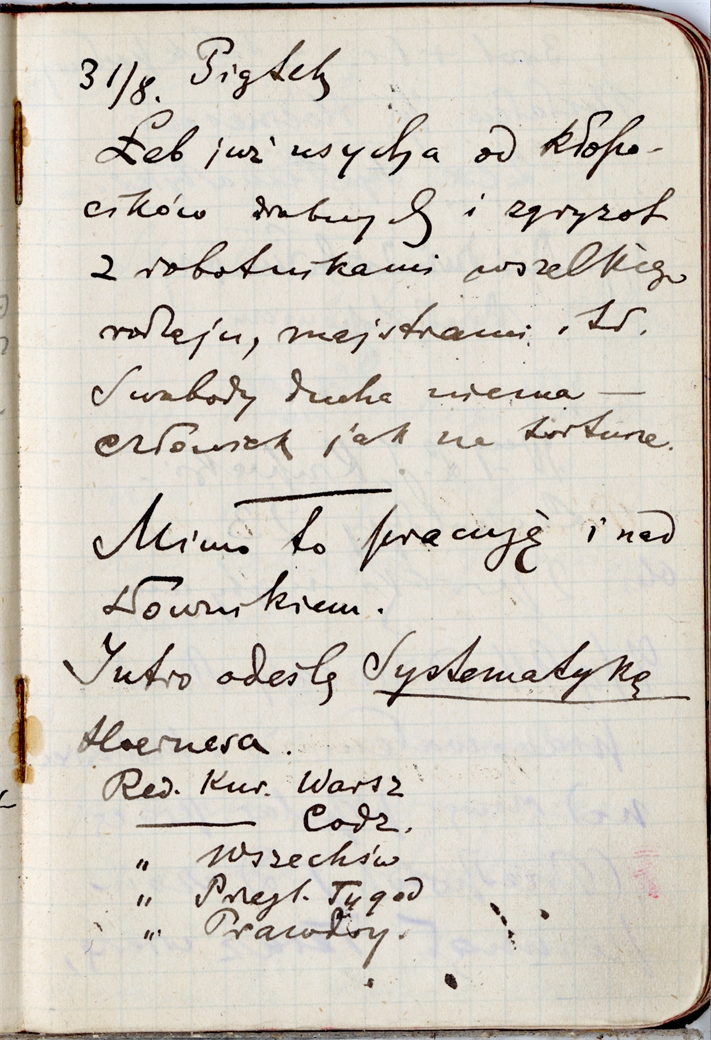 31/8. Piątek
Łeb już usycha od kłopo-
cików drobnych i zgryzot
z robotnikami wszelkiego
rodzaju, majstrami itd.
Swobody ducha niema —
człowiek jak na torturze.
Mimo to pracuję i nad
słownikiem.
Jutro odeślę Systematykę
Hoernesa.
Red. Kur. Warsz
——— Codz.
„ Wszechśw
„ Przegl. Tygod
„ Prawdy.